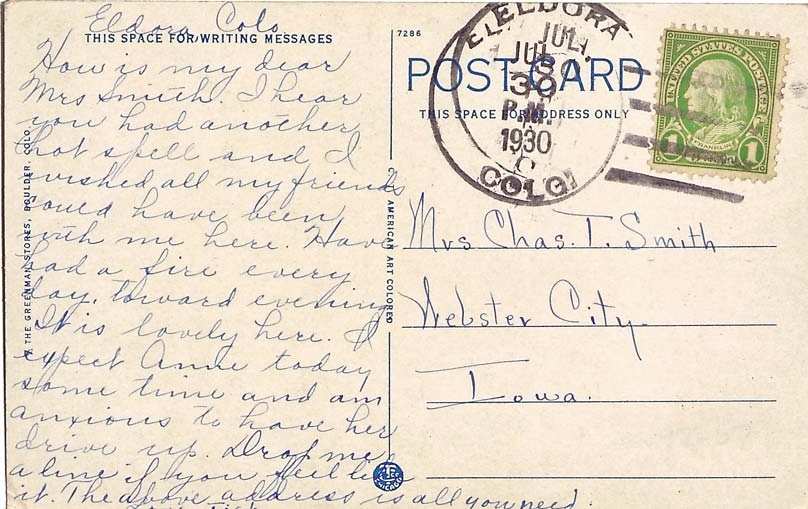 Eldora, Colo
THIS SPACE FOR WRITING MESSAGES
How is my dear
Mrs Smith. I hear
you had another
hot spell and I
wished all my friends
could have been
with me here. Have
had a fire every
day, toward evening
It is lovely here. I
expect Anne today
some time and am
anxious to have her
drive up. Drop me
a line if you feel like
it. The above address is all you need.
THE GREENMAN STORES, BOULDER, COLO.
AMERICAN ART COLORED
7286
POST CARD
THIS SPACE FOR ADDRESS ONLY
ELDORA
JUL
30
P.M.
1930
COLO.
UNITED STATES POSTAGE
FRANKLIN
1 1
Mrs Chas. T. Smith
Webster City.
Iowa.